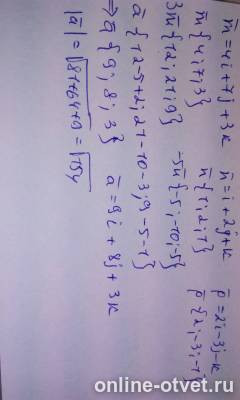 m̅=4i+7j+3k  n̅=i+2j+k  p̅=2i-3j-k
m̅{4;7;3}  n̅{1;2;1}  p̅{2;-3;-1}
3m̅{12;21;9}  -5n̅{-5;-10;-5}
a̅{12-5+2;21-10-3;9-5-1}
⇒a̅{9;8;3}  a̅=9i+8j+3k
|a̅|=√81+64+9=√154
online-otvet.ru